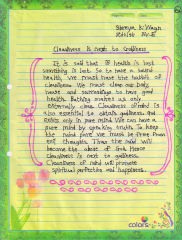 Shreya K. Wagh
Cleanliness is next to Godliness
It is said that If health is lost
something is lost. So to have a sound
health, we must have the habit of
cleanliness. We must clean our body,
house and surroundings to have good
health. Bathing makes us only
externally clean. Cleanliness of mind is
also essential to attain godliness. God
exists only in pure mind. We can have a
pure mind by speaking truth. To keep
the mind pure we must be free from
evil thoughts. Then the mind will
become the abode of God. Hence
Cleanliness is next to godliness.
Cleanliness of mind will promote
spiritual perfection and happiness.
colors